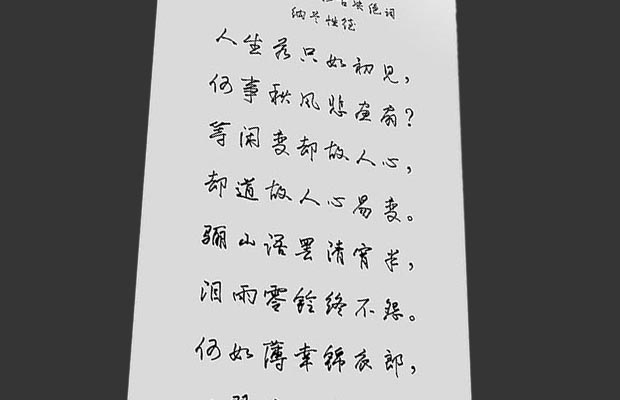 古决绝词
纳兰性德
人生若只如初见,
何事秋风悲画扇?
等闲变却故人心,
却道故人心易变。
骊山语罢清宵半,
泪雨零铃终不怨。
何如薄幸锦衣郎,